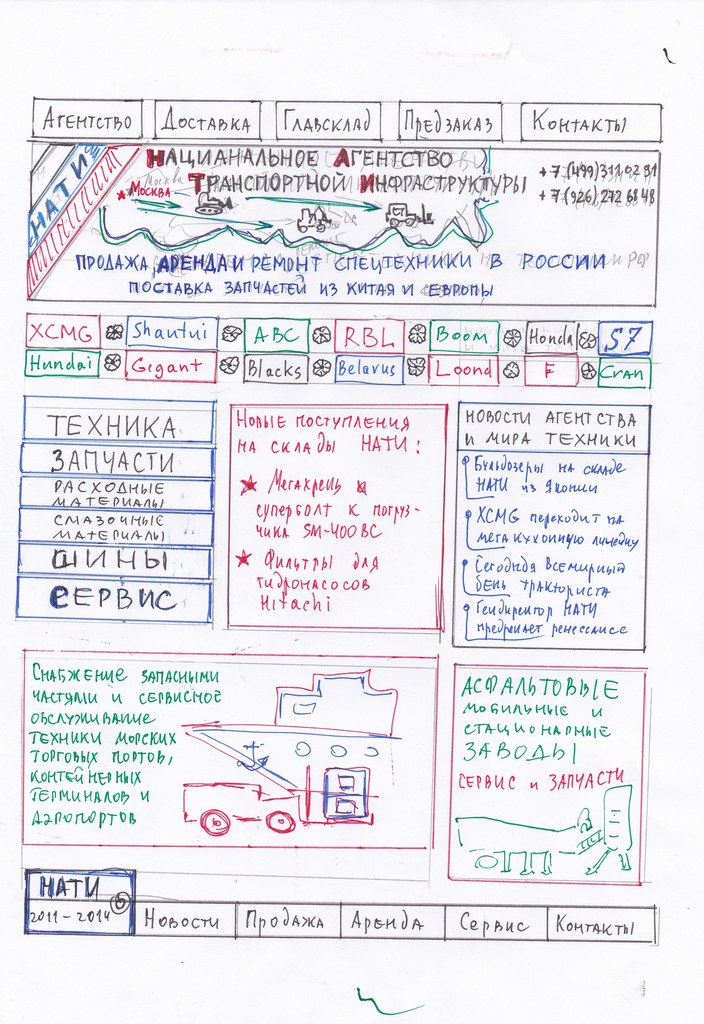 Агентство Доставка Главсклад Предзаказ Контакты
НАТИ
Нацианальное Агентство
Транспортной Инфраструктуры
+7(499)311 02 91
+7(926)272 68 48
Москва
продажа, аренда и ремонт спецтехники в России
поставка запчастей из Китая и Европы
XCMG Shantui ABC RBL Boom Honda S7
Hundai Gigant Blacks Belarus Loond F Cran
Техника
Запчасти
Расходные
материалы
Смазочные
материалы
Шины
Сервис
Новые поступления
на склады НАТИ:
суперболт к погруз-
чика SM-400 BC
Фильтры для
гидронасосов
Hitachi
Новости агентства
и мира техники
Бульдозеры на складе
НАТИ из Японии
XCMG переходит на
Сегодня всемирный
день тракториста
Гендиректор НАТИ
Снабжение запасными
частями и сервисное
обслуживание
техники морских
торговых портов,
контейнерных
терминалов и
аэропортов
Асфальтовые
мобильные и
стационарные
заводы
сервис и запчасти
НАТИ
2011-2014
Новости Продажа Аренда Сервис Контакты